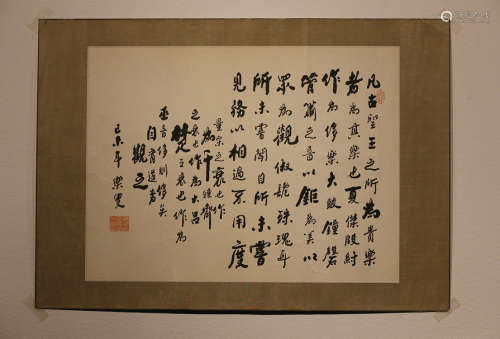 凡古聖王之所為貴樂
者為其樂也夏傑殷紂
作為侈樂大鼓鐘磬
管簫之音以鉅為美以
眾為觀俶詭殊瑰耳
所未嘗聞目所未嘗
見務以相過不用度
量宋之衰也作
為千鍾齊
之衰也作為大呂
楚之衰也作為
巫音侈則侈矣
自有道者
觀之
己未年